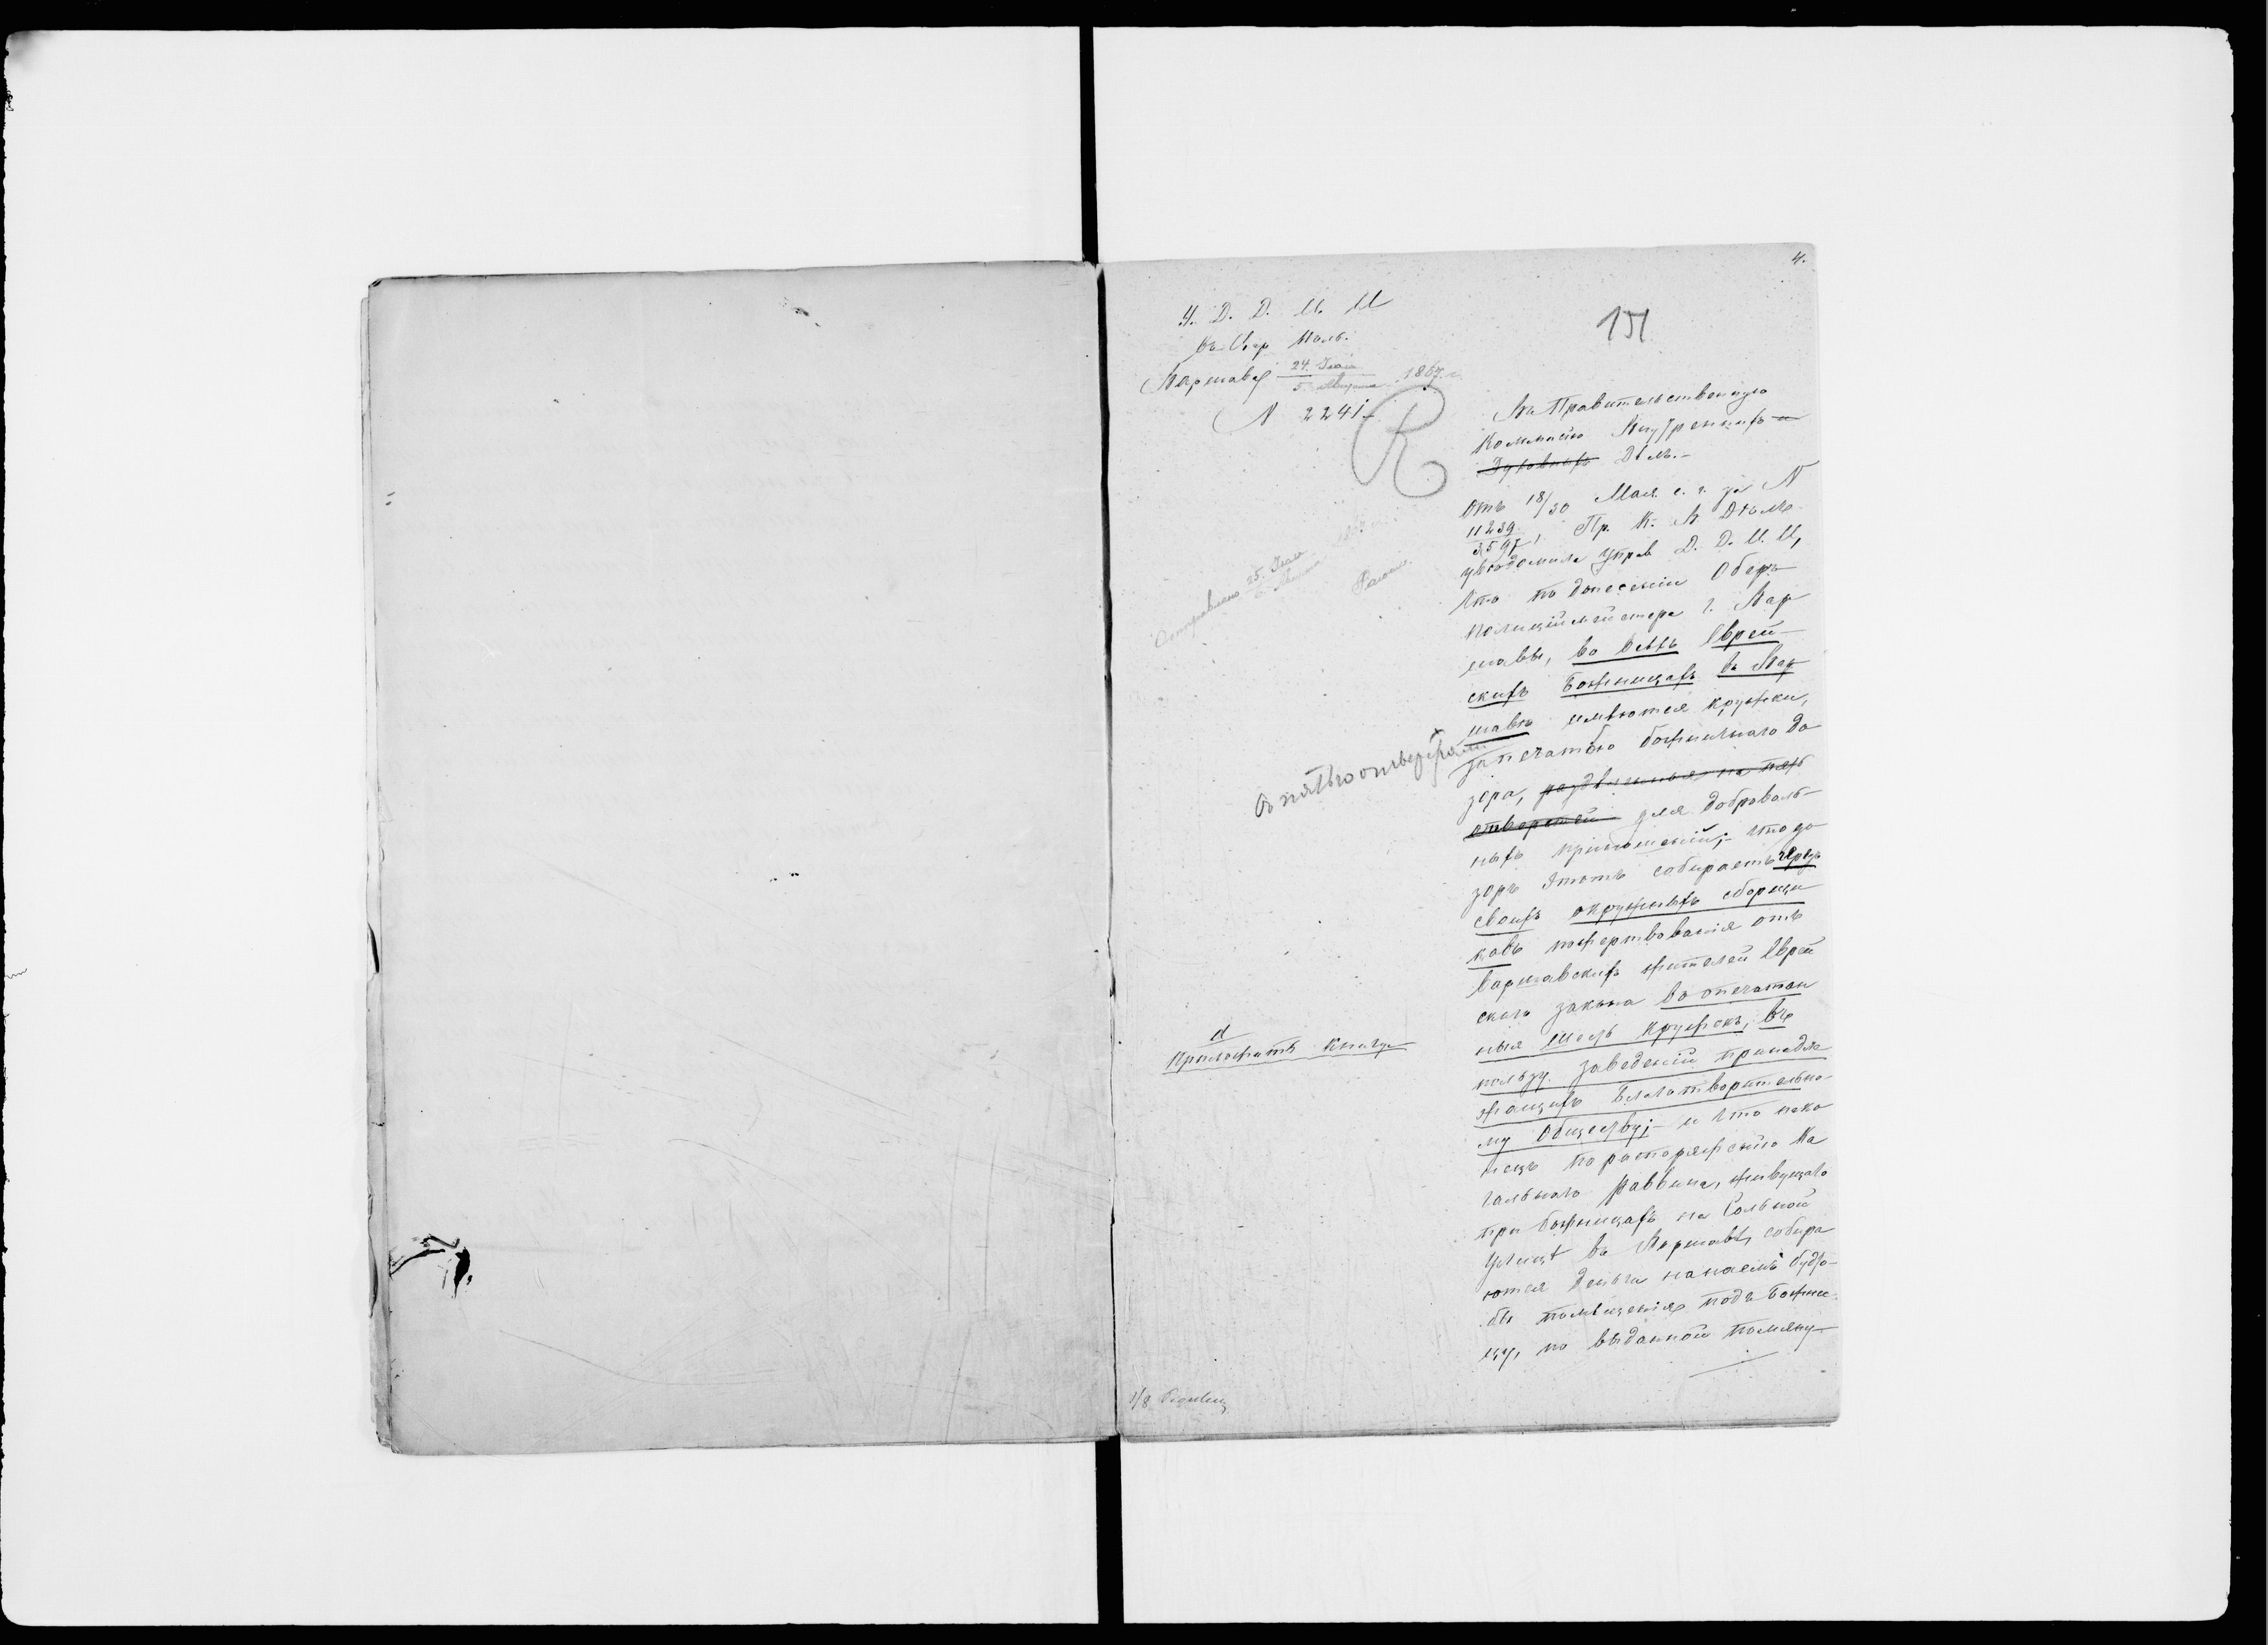 4.
151
У. Д. Д. И. И
въ Цар. Польс.
Варшава 24. Іюля / 5. Августа 1867. г.
N 2241.
R
Въ Правительственную
Коммисію Внутреннихъ и
Духовныхъ Дѣлъ.
Отъ 18/30 Мая с. г. за N
11239/3597, Пр. К. В. Дѣлъ
увѣдомила Управ. Д. Д. И. И,
что по донесенію Оберъ
Полиційместера г. Вар
шавы, во всѣхъ Еврей
скихъ Божницахъ въ Вар
шавѣ имѣются кружки,
за печатью божничнаго до
зора,
отверстій для доброволь
ныхъ приношеній; что до
зоръ этотъ собираетъ чрезъ
своихъ окружныхъ сборщи
ковъ пожертвованія отъ
варшавскихъ жителей Еврей
скаго закона во опечатан
ныя шесть кружекъ, въ
пользу заведеній принадле
жащихъ Благотворительно
му Обществу; и что нако
нецъ по распоряженію Ка
гальнаго раввина, живущаго
при божницахъ на Сольной
улицѣ въ Варшавѣ, собира
ются деньги на наемъ будто
бы помѣщенія подъ Божни
цу, по выданной помяну
Отправлено 25. Іюля / 6. Августа 1867 г.
съ пятью отверстіями
Приложить книгу
1/8